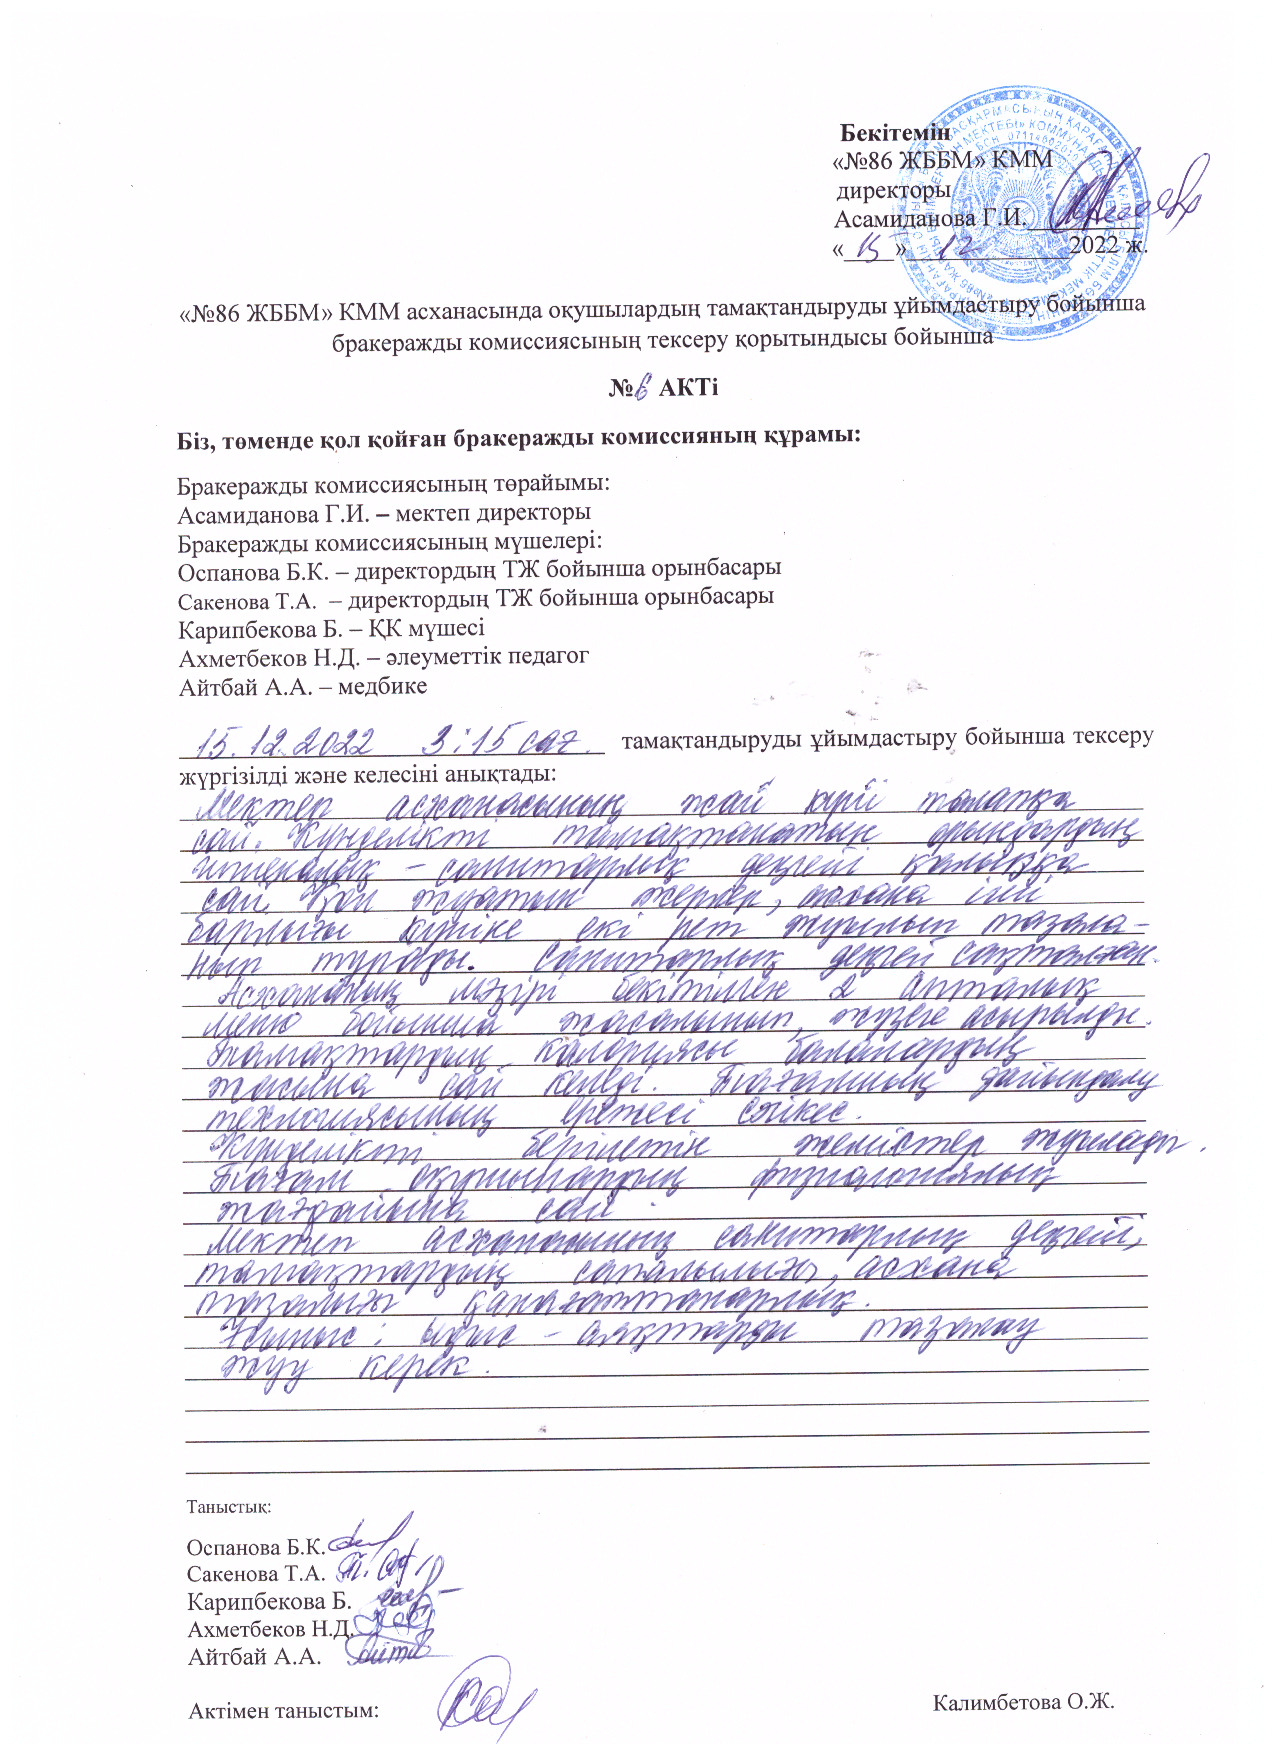 Бекітемін
«№86 ЖББМ» КММ
директоры
Асамиданова Г.И.
«15» 12 2022 ж.
«№86 ЖББМ» КММ асханасында оқушылардың тамақтандыруды ұйымдастыру бойынша
бракеражды комиссиясының тексеру қорытындысы бойынша
№6 АКТі
Біз, төменде қол қойған бракеражды комиссияның құрамы:
Бракеражды комиссиясының төрайымы:
Асамиданова Г.И. – мектеп директоры
Бракеражды комиссиясының мүшелері:
Оспанова Б.К. – директордың ТЖ бойынша орынбасары
Сакенова Т.А. – директордың ТЖ бойынша орынбасары
Карипбекова Б. – ҚК мүшесі
Ахметбеков Н.Д. – әлеуметтік педагог
Айтбай А.А. – медбике
15.12.2022 3:15 сағ. тамақтандыруды ұйымдастыру бойынша тексеру
жүргізілді және келесіні анықтады:
Мектеп асханасының жай күйі талапқа
сай. Күнделікті тамақтанатын орындардың
гигиеналық - санитарлық деңгейі қалыпқа
сай. Қол жуатын жерлер, асхана іші
барлығы күніне екі рет жуылып тазала-
нып тұрады. Санитарлық деңгей сақталған.
Асхананың мәзірі бекітілген 2 апталық
меню бойынша жасалынып, жүзеге асырылды.
Тамақтардың калориясы балалардың
жасына сай келеді. Тағамның дайындалу
технологиясының ережесі сәйкес.
Күнделікті берілетін жемістер жуылады.
Тағам оқушылардың физиологиялық
жағдайына сай.
Мектеп асханасының санитарлық деңгейі,
тамақтардың сапалылығы, асхана
тазалығы қанағаттанарлық.
Ұсыныс: ыдыс - аяқтарды тазалау
жуу керек.
Таныстық:
Оспанова Б.К.
Сакенова Т.А.
Карипбекова Б.
Ахметбеков Н.Д.
Айтбай А.А.
Актімен таныстым: Калимбетова О.Ж.